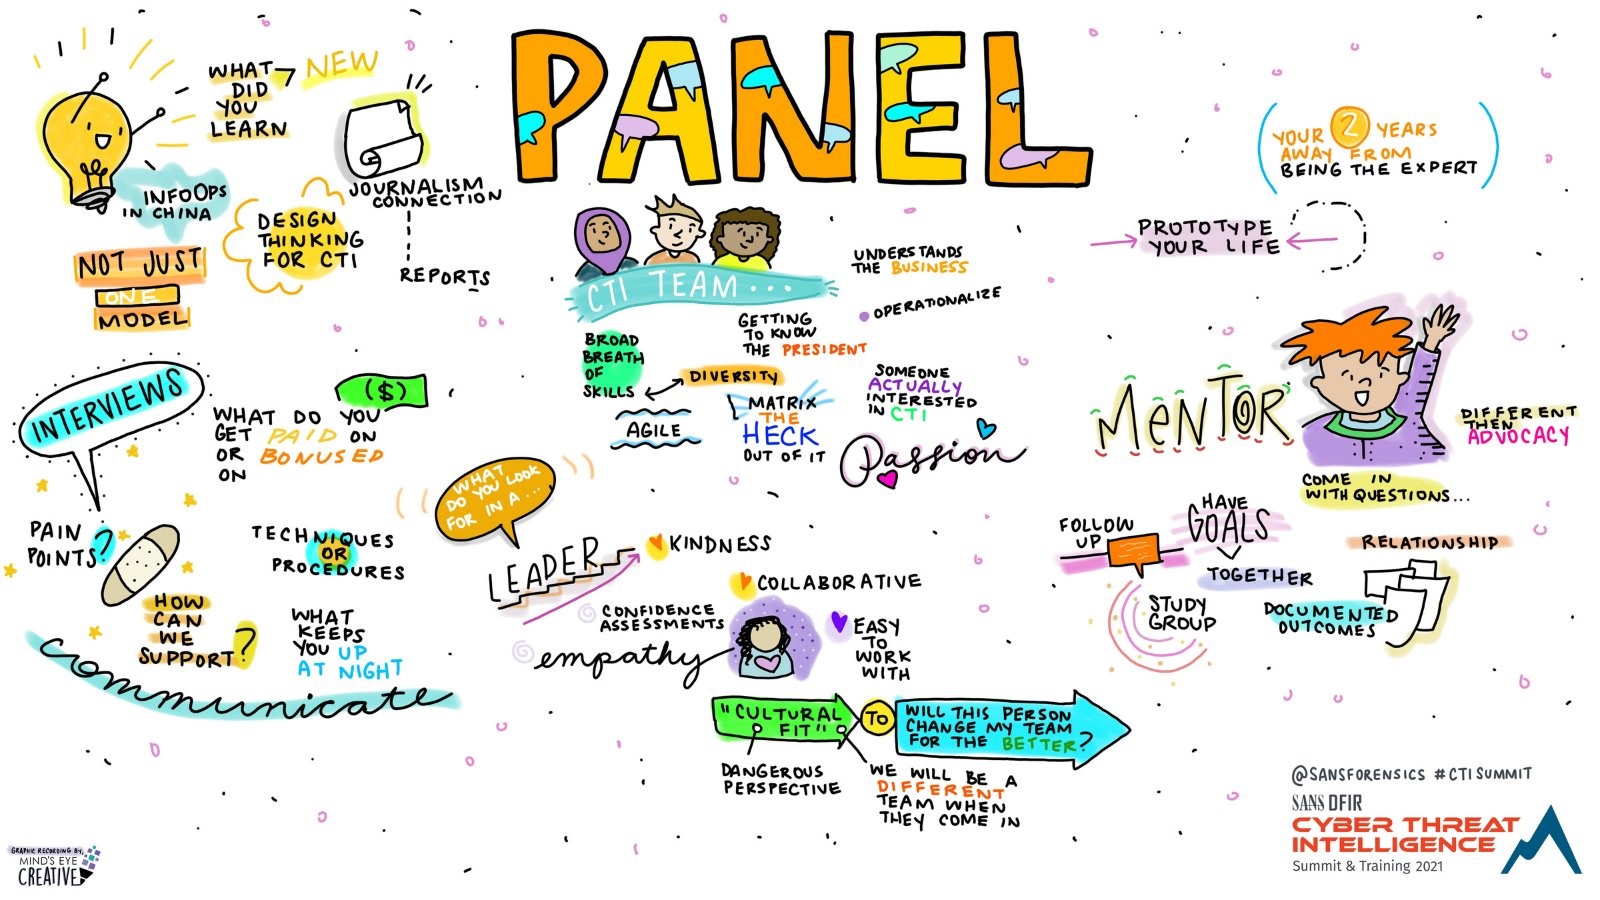 PANEL
WHAT
DID
YOU
LEARN
NEW
INFOOPS
IN CHINA
JOURNALISM
CONNECTION
REPORTS
DESIGN
THINKING
FOR CTI
NOT JUST
ONE
MODEL
INTERVIEWS
($)
WHAT DO YOU
GET PAID ON
OR BONUSED
ON
PAIN
POINTS?
TECHNIQUES
OR
PROCEDURES
HOW
CAN
WE
SUPPORT?
WHAT
KEEPS
YOU UP
AT NIGHT
communicate
CTI TEAM...
UNDERSTANDS
THE BUSINESS
OPERATIONALIZE
GETTING
TO KNOW
THE PRESIDENT
BROAD
BREATH
OF
SKILLS
DIVERSITY
AGILE
MATRIX
THE
HECK
OUT OF IT
SOMEONE
ACTUALLY
INTERESTED
IN CTI
Passion
WHAT
DO YOU LOOK
FOR IN A...
LEADER
KINDNESS
COLLABORATIVE
CONFIDENCE
ASSESSMENTS
empathy
EASY
TO
WORK
WITH
"CULTURAL
FIT"
TO
WILL THIS PERSON
CHANGE MY TEAM
FOR THE BETTER?
DANGEROUS
PERSPECTIVE
WE WILL BE A
DIFFERENT
TEAM WHEN
THEY COME IN
YOUR 2 YEARS
AWAY FROM
BEING THE EXPERT
PROTOTYPE
YOUR LIFE
MENTOR
DIFFERENT
THEN
ADVOCACY
COME IN
WITH QUESTIONS...
HAVE
GOALS
TOGETHER
FOLLOW
UP
STUDY
GROUP
RELATIONSHIP
DOCUMENTED
OUTCOMES
@SANSFORENSICS #CTISUMMIT
SANS DFIR
CYBER THREAT
INTELLIGENCE
Summit & Training 2021
GRAPHIC RECORDING BY,
MIND'S EYE
CREATIVE